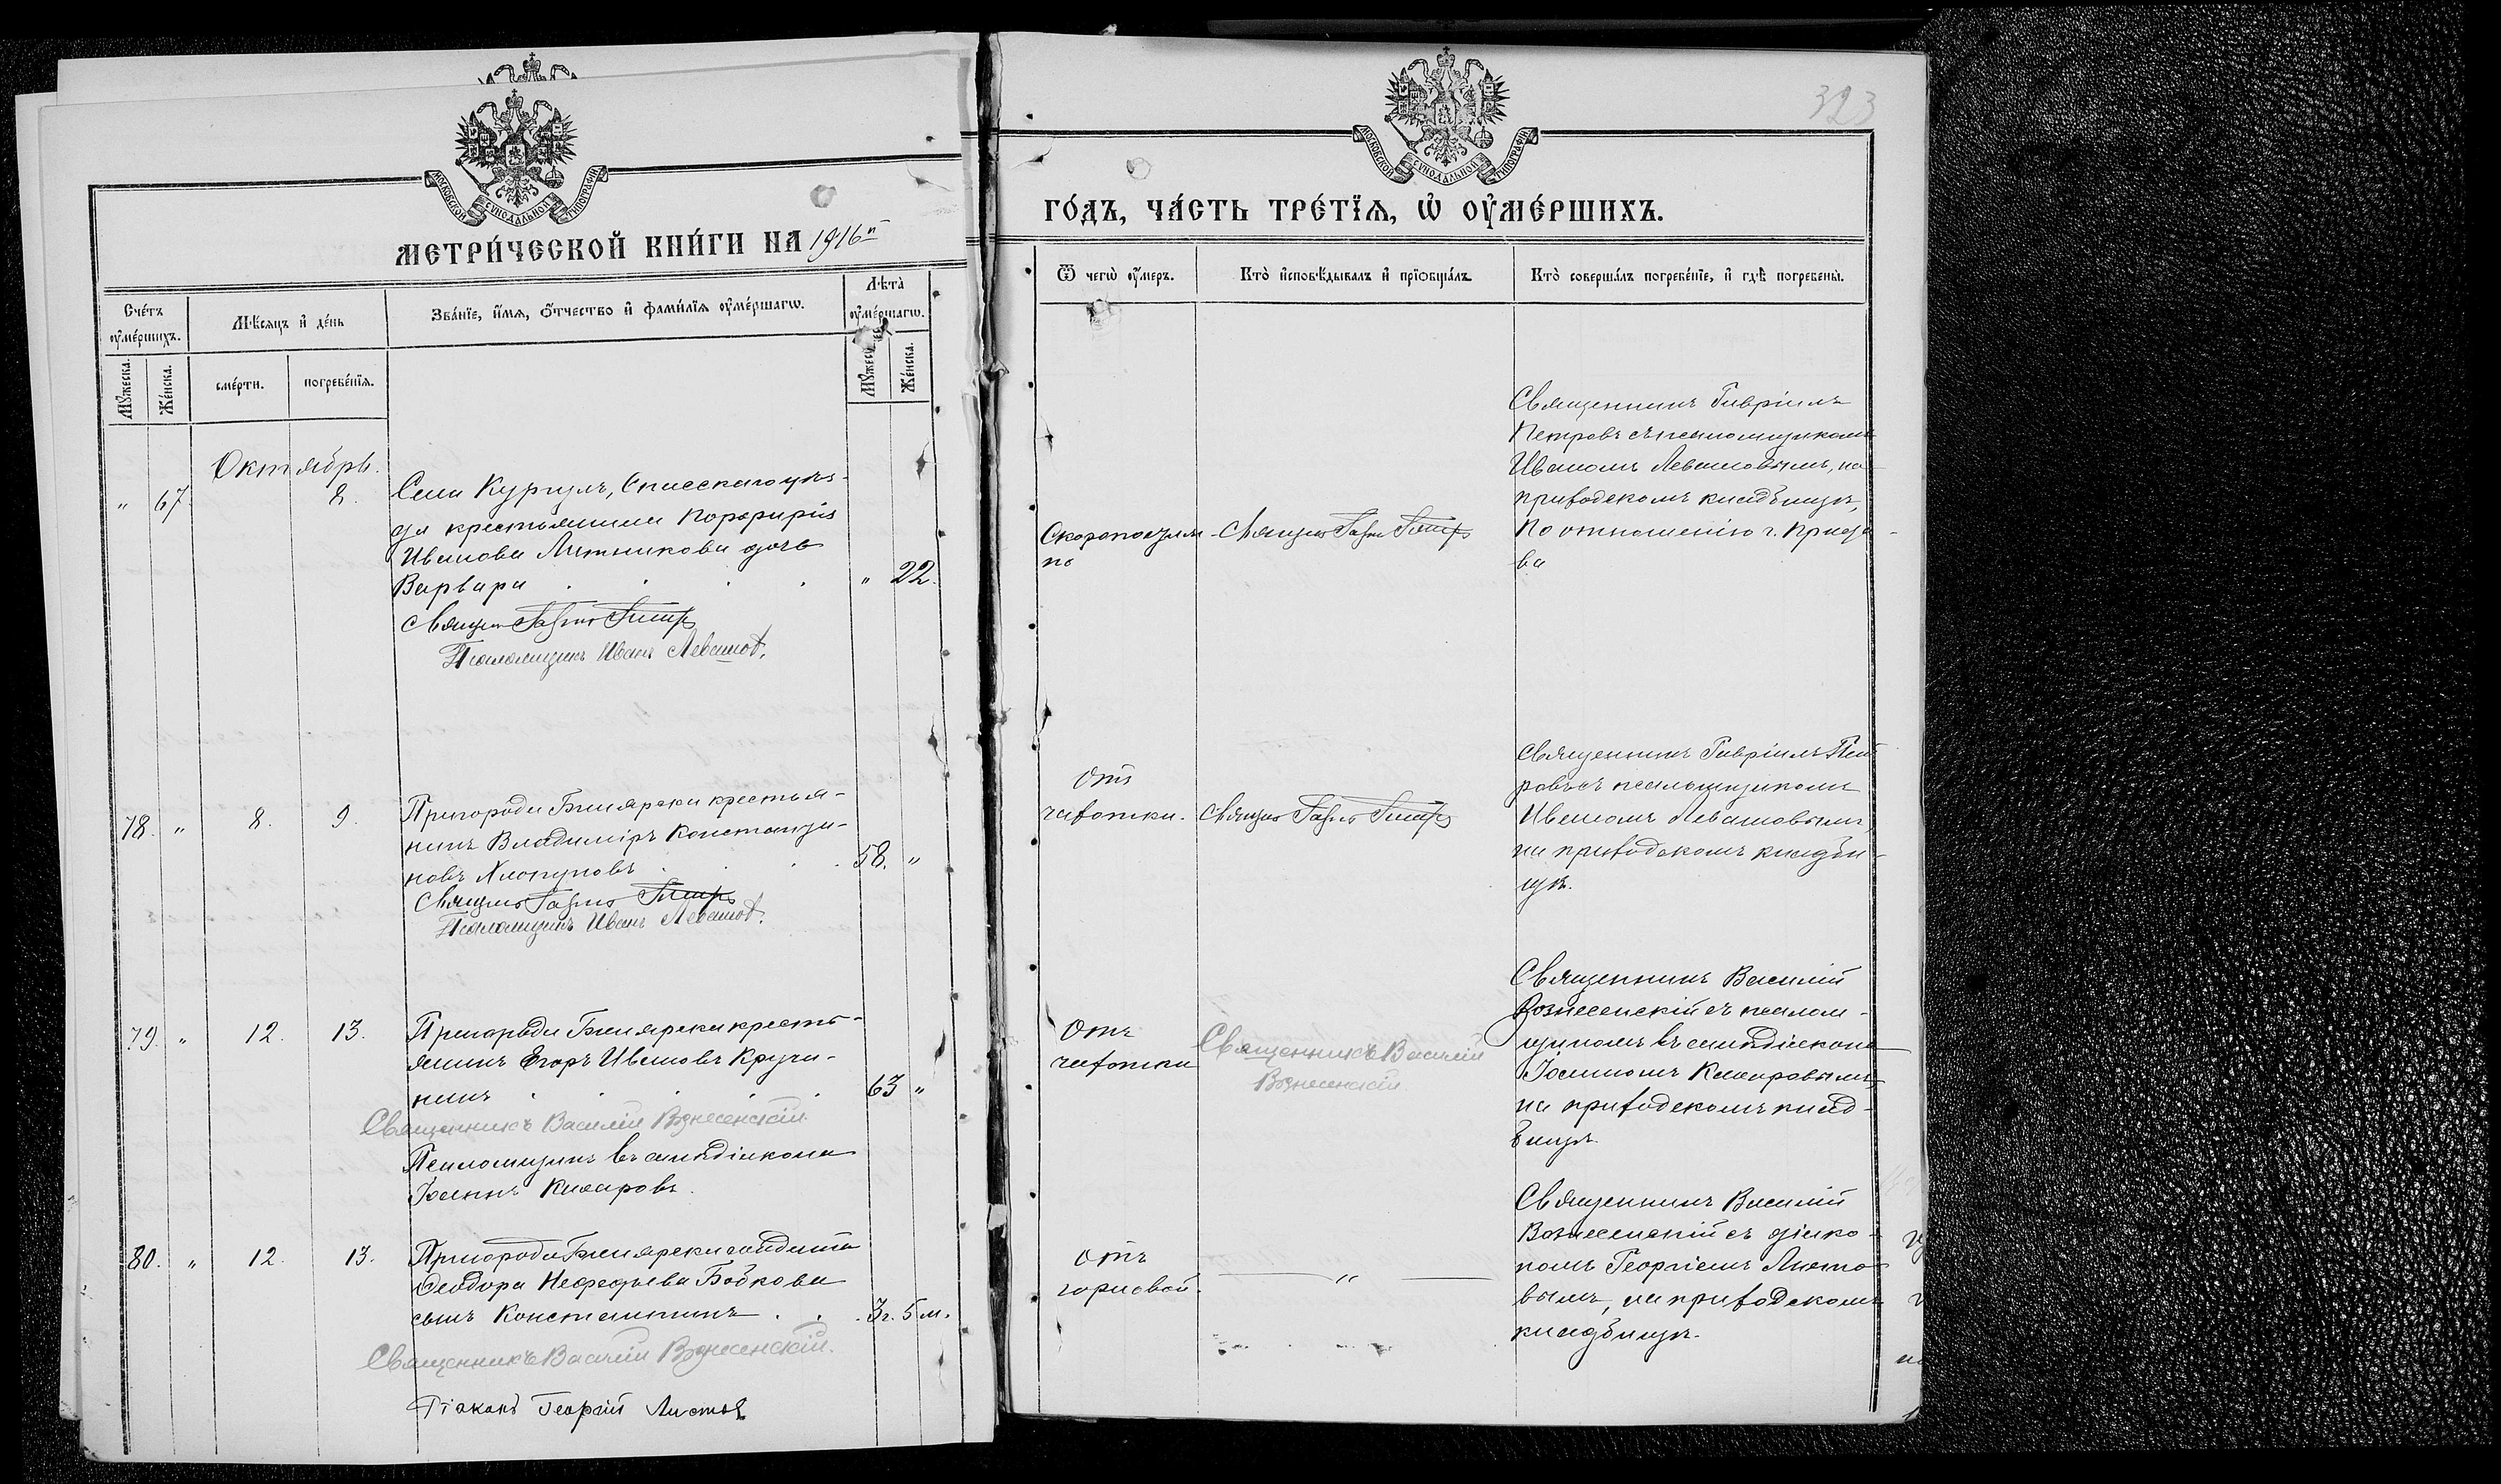 МОСКОВСКОЙ СУНОДАЛЬНОЙ ТИПОГРАФІИ
МЕТРИ́ЧЕСКОЙ КНИ́ГИ НА 1916й
Сче́тъ ᲂу҆ме́ршихъ.
Мѣ́сяцъ и҆ де́нь
Зва́нїе, и҆́мѧ, ѻ҆́тчество и҆ фами́лїѧ ᲂу҆ме́ршагѡ.
Лѣ́та ᲂу҆ме́ршагѡ.
Мꙋ́жеска.
Же́нска.
сме́рти.
погребе́нїѧ.
Мꙋ́жеска.
Же́нска.
Октябрь.
" 67. 8.
Села Кургулъ, Спасскаго уѣз-
да крестьянина Порфирія
Иванова Лѣтникова дочь
Варвара . . . " 22.
Священ Гавріил Петровъ
Псаломщикъ Иванъ Левашов.
78. " 8. 9.
Пригорода Билярска крестья-
нинъ Владиміръ Констанди-
новъ Хлопуновъ . . . 58. "
Священ Гавріил Петровъ
Псаломщикъ Иванъ Левашов.
79. " 12. 13.
Пригорода Билярска кресть-
янинъ Егоръ Ивановъ Кручи-
нинъ . . . . . 63 "
Священникъ Василій Вознесенскій
Псаломщикъ въ санѣ діакона
Іоаннъ Комаровъ.
80. " 12. 13.
Пригорода Билярска солдата
Ѳеодора Нефедьева Бобкова
сынъ Константинъ . . . 3г. 5 м.
Священникъ Василій Вознесенскій.
Діаконъ Георгій Листов
323
МОСКОВСКОЙ СУНОДАЛЬНОЙ ТИПОГРАФІИ
ГО́ДЪ, ЧА́СТЬ ТРЕ́ТЇѦ, Ѡ҆ ᲂУ҆МЕ́РШИХЪ.
Ѿ чегѡ̀ ᲂу҆́меръ.
Кто̀ и҆сповѣ́дывалъ и҆ прїѡбща́лъ.
Кто̀ соверша́лъ погребе́нїе, и҆ гдѣ̀ погребены̀.
Скоропостиж-
но
Священ Гавріил Петровъ
Священникъ Гавріилъ
Петровъ съ псаломщикомъ
Иваномъ Левашовымъ, на
приходскомъ кладбищѣ,
По отношенію г. Приста-
ва
отъ
чахотки.
Священ Гавріил Петровъ
Священникъ Гавріилъ Пет
ровъ съ псаломщикомъ
Иваномъ Левашовымъ,
на приходскомъ кладби-
щѣ.
Отъ
чахотки
Священникъ Василій
Вознесенскій
Священникъ Василій
Вознесенскій съ псалом-
щикомъ въ санѣ діакона
Іоанномъ Комаровымъ,
на приходскомъ клад-
бищѣ
отъ
горловой.
"
Священникъ Василій
Вознесенскій съ діако-
номъ Георгіемъ Листо-
вымъ, на приходскомъ
кладбищѣ.